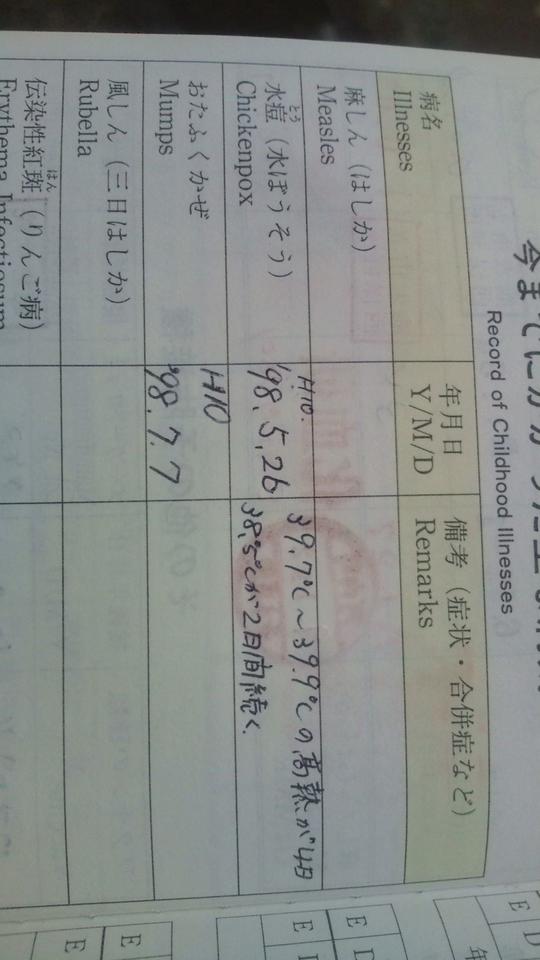 Record of Childhood Illnesses
病名
Illnesses
年月日
Y/M/D
備考（症状・合併症など）
Remarks
麻しん（はしか）
Measles
水痘（水ぼうそう）
とう
Chickenpox
H10.
'98.5.26
39.7℃〜39.9℃の高熱が4日
38.5℃が2日間続く.
おたふくかぜ
Mumps
H10
'98.7.7
風しん（三日はしか）
Rubella
伝染性紅斑（りんご病）
はん
E
E
E
E